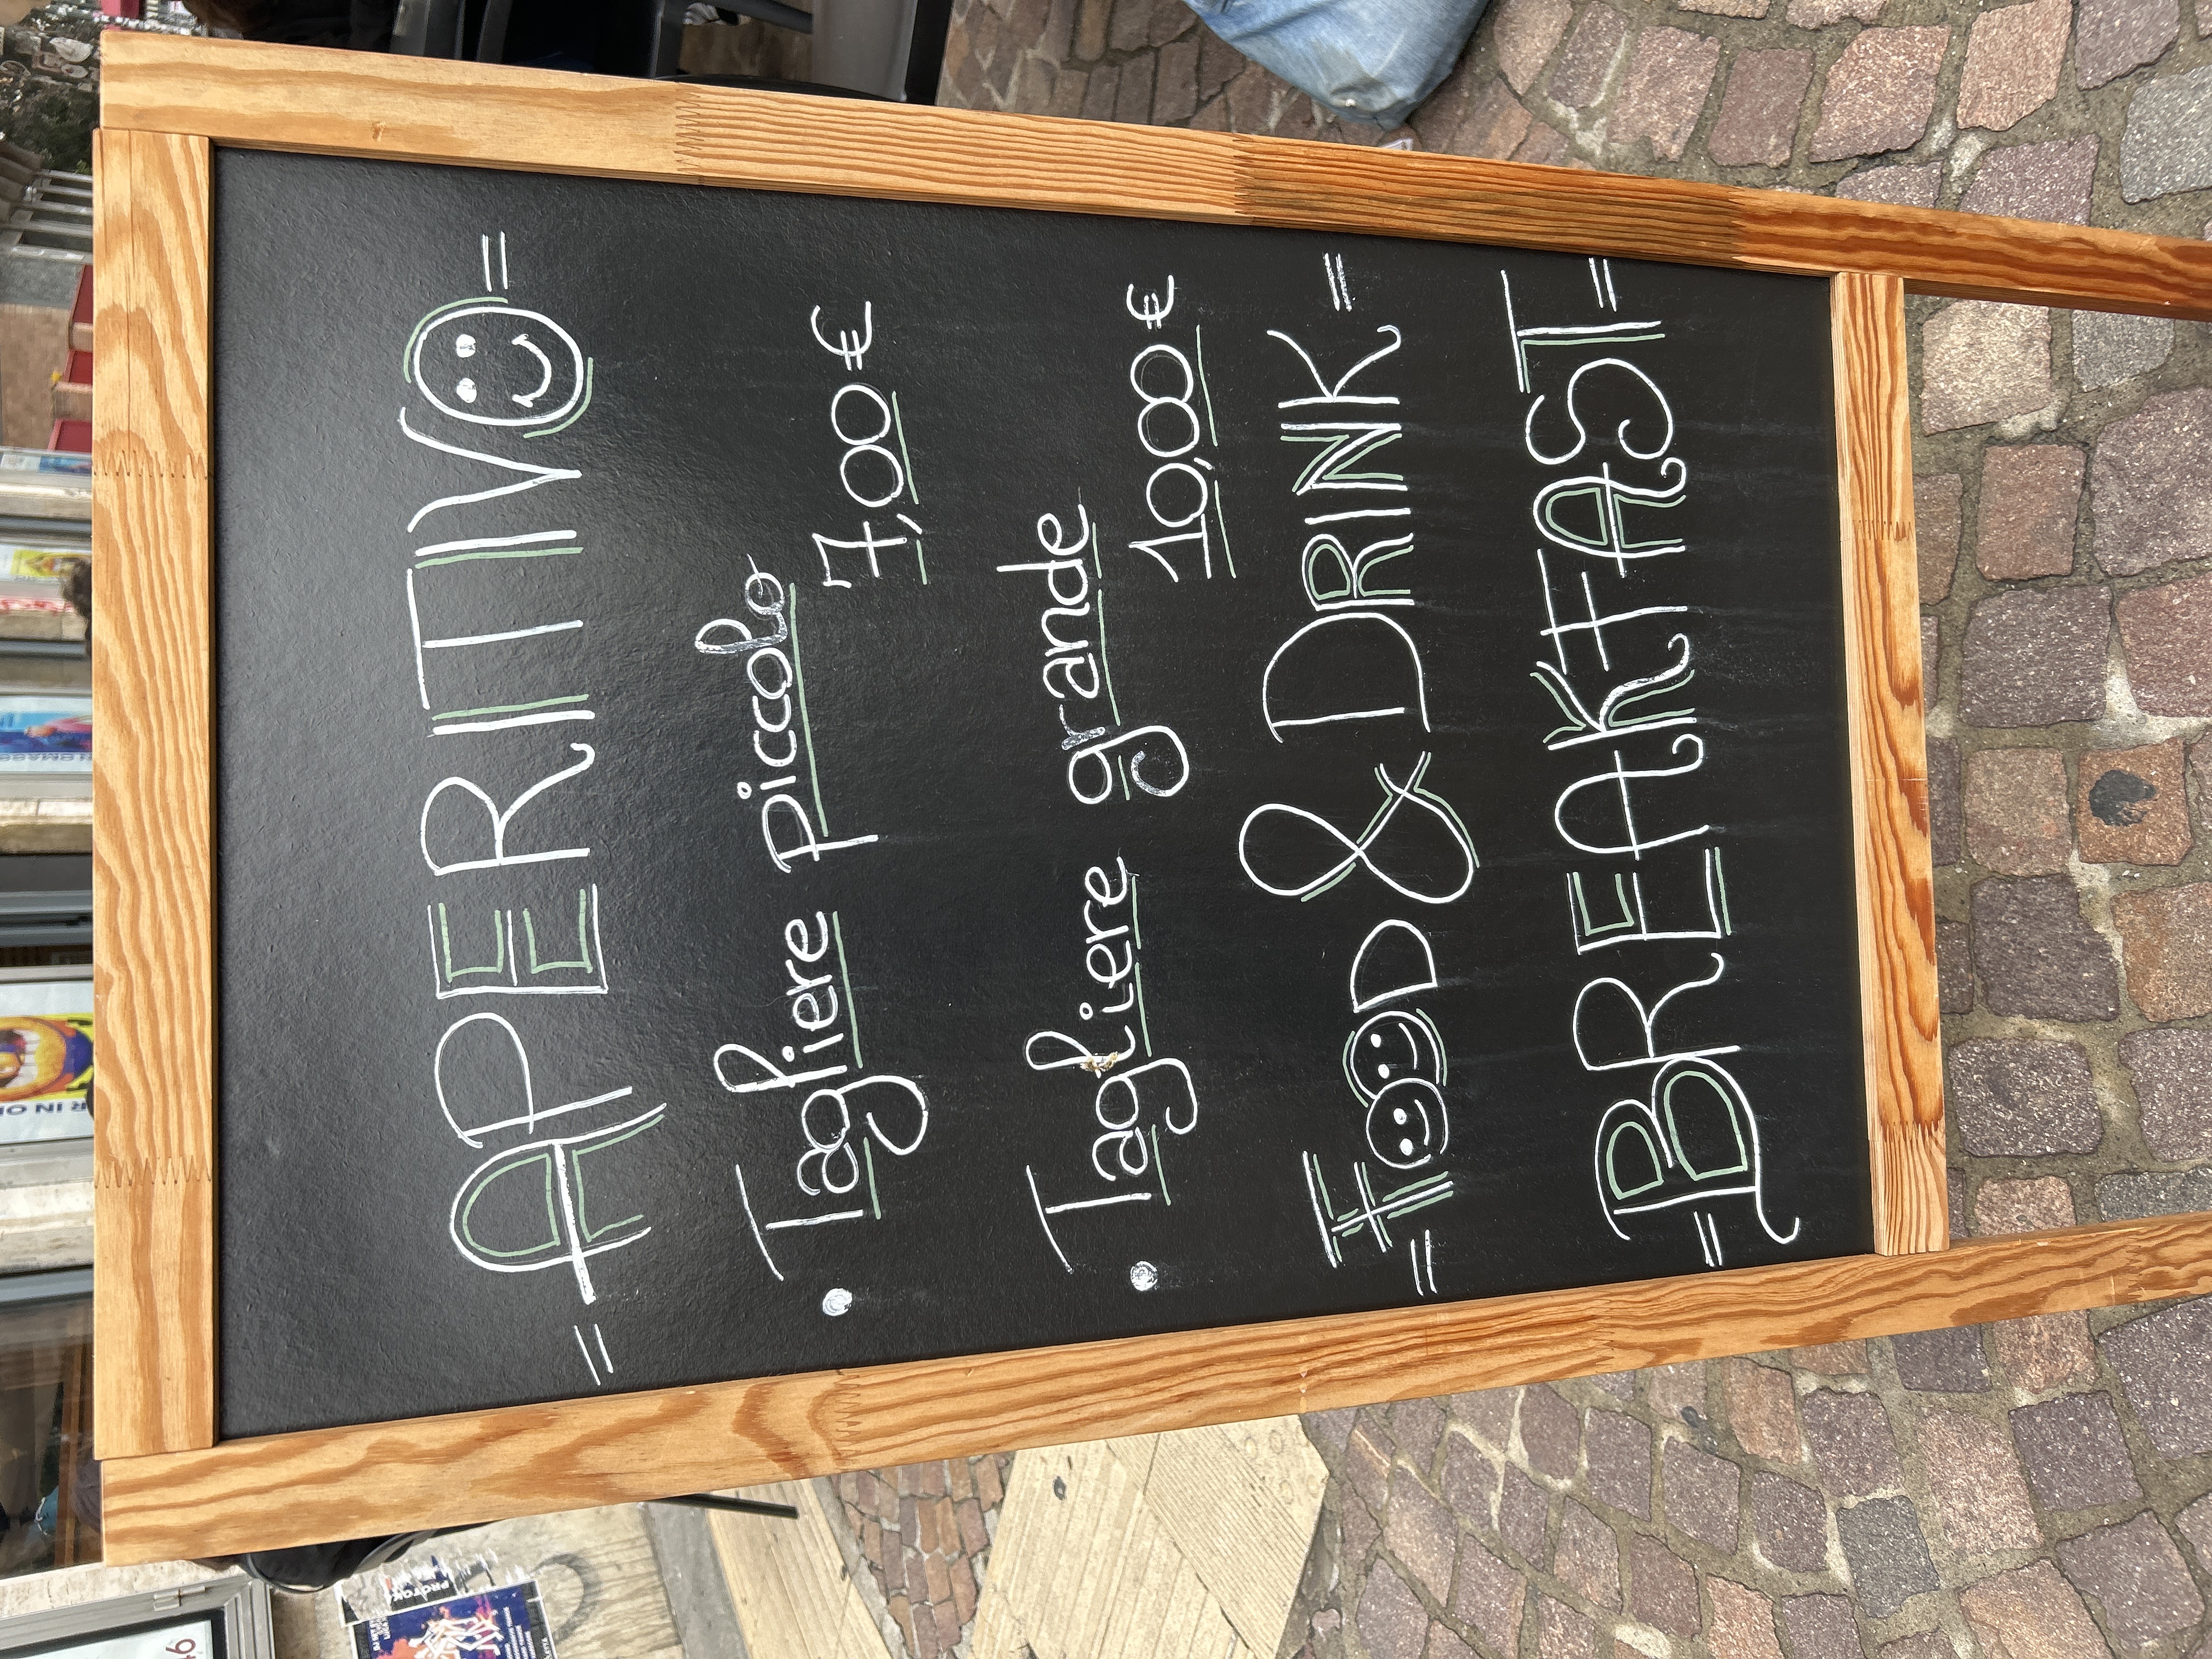 = APERITIVO =
• Tagliere piccolo
7,00 €
• Tagliere grande
10,00 €
= FOOD & DRINK =
= BREAKFAST =